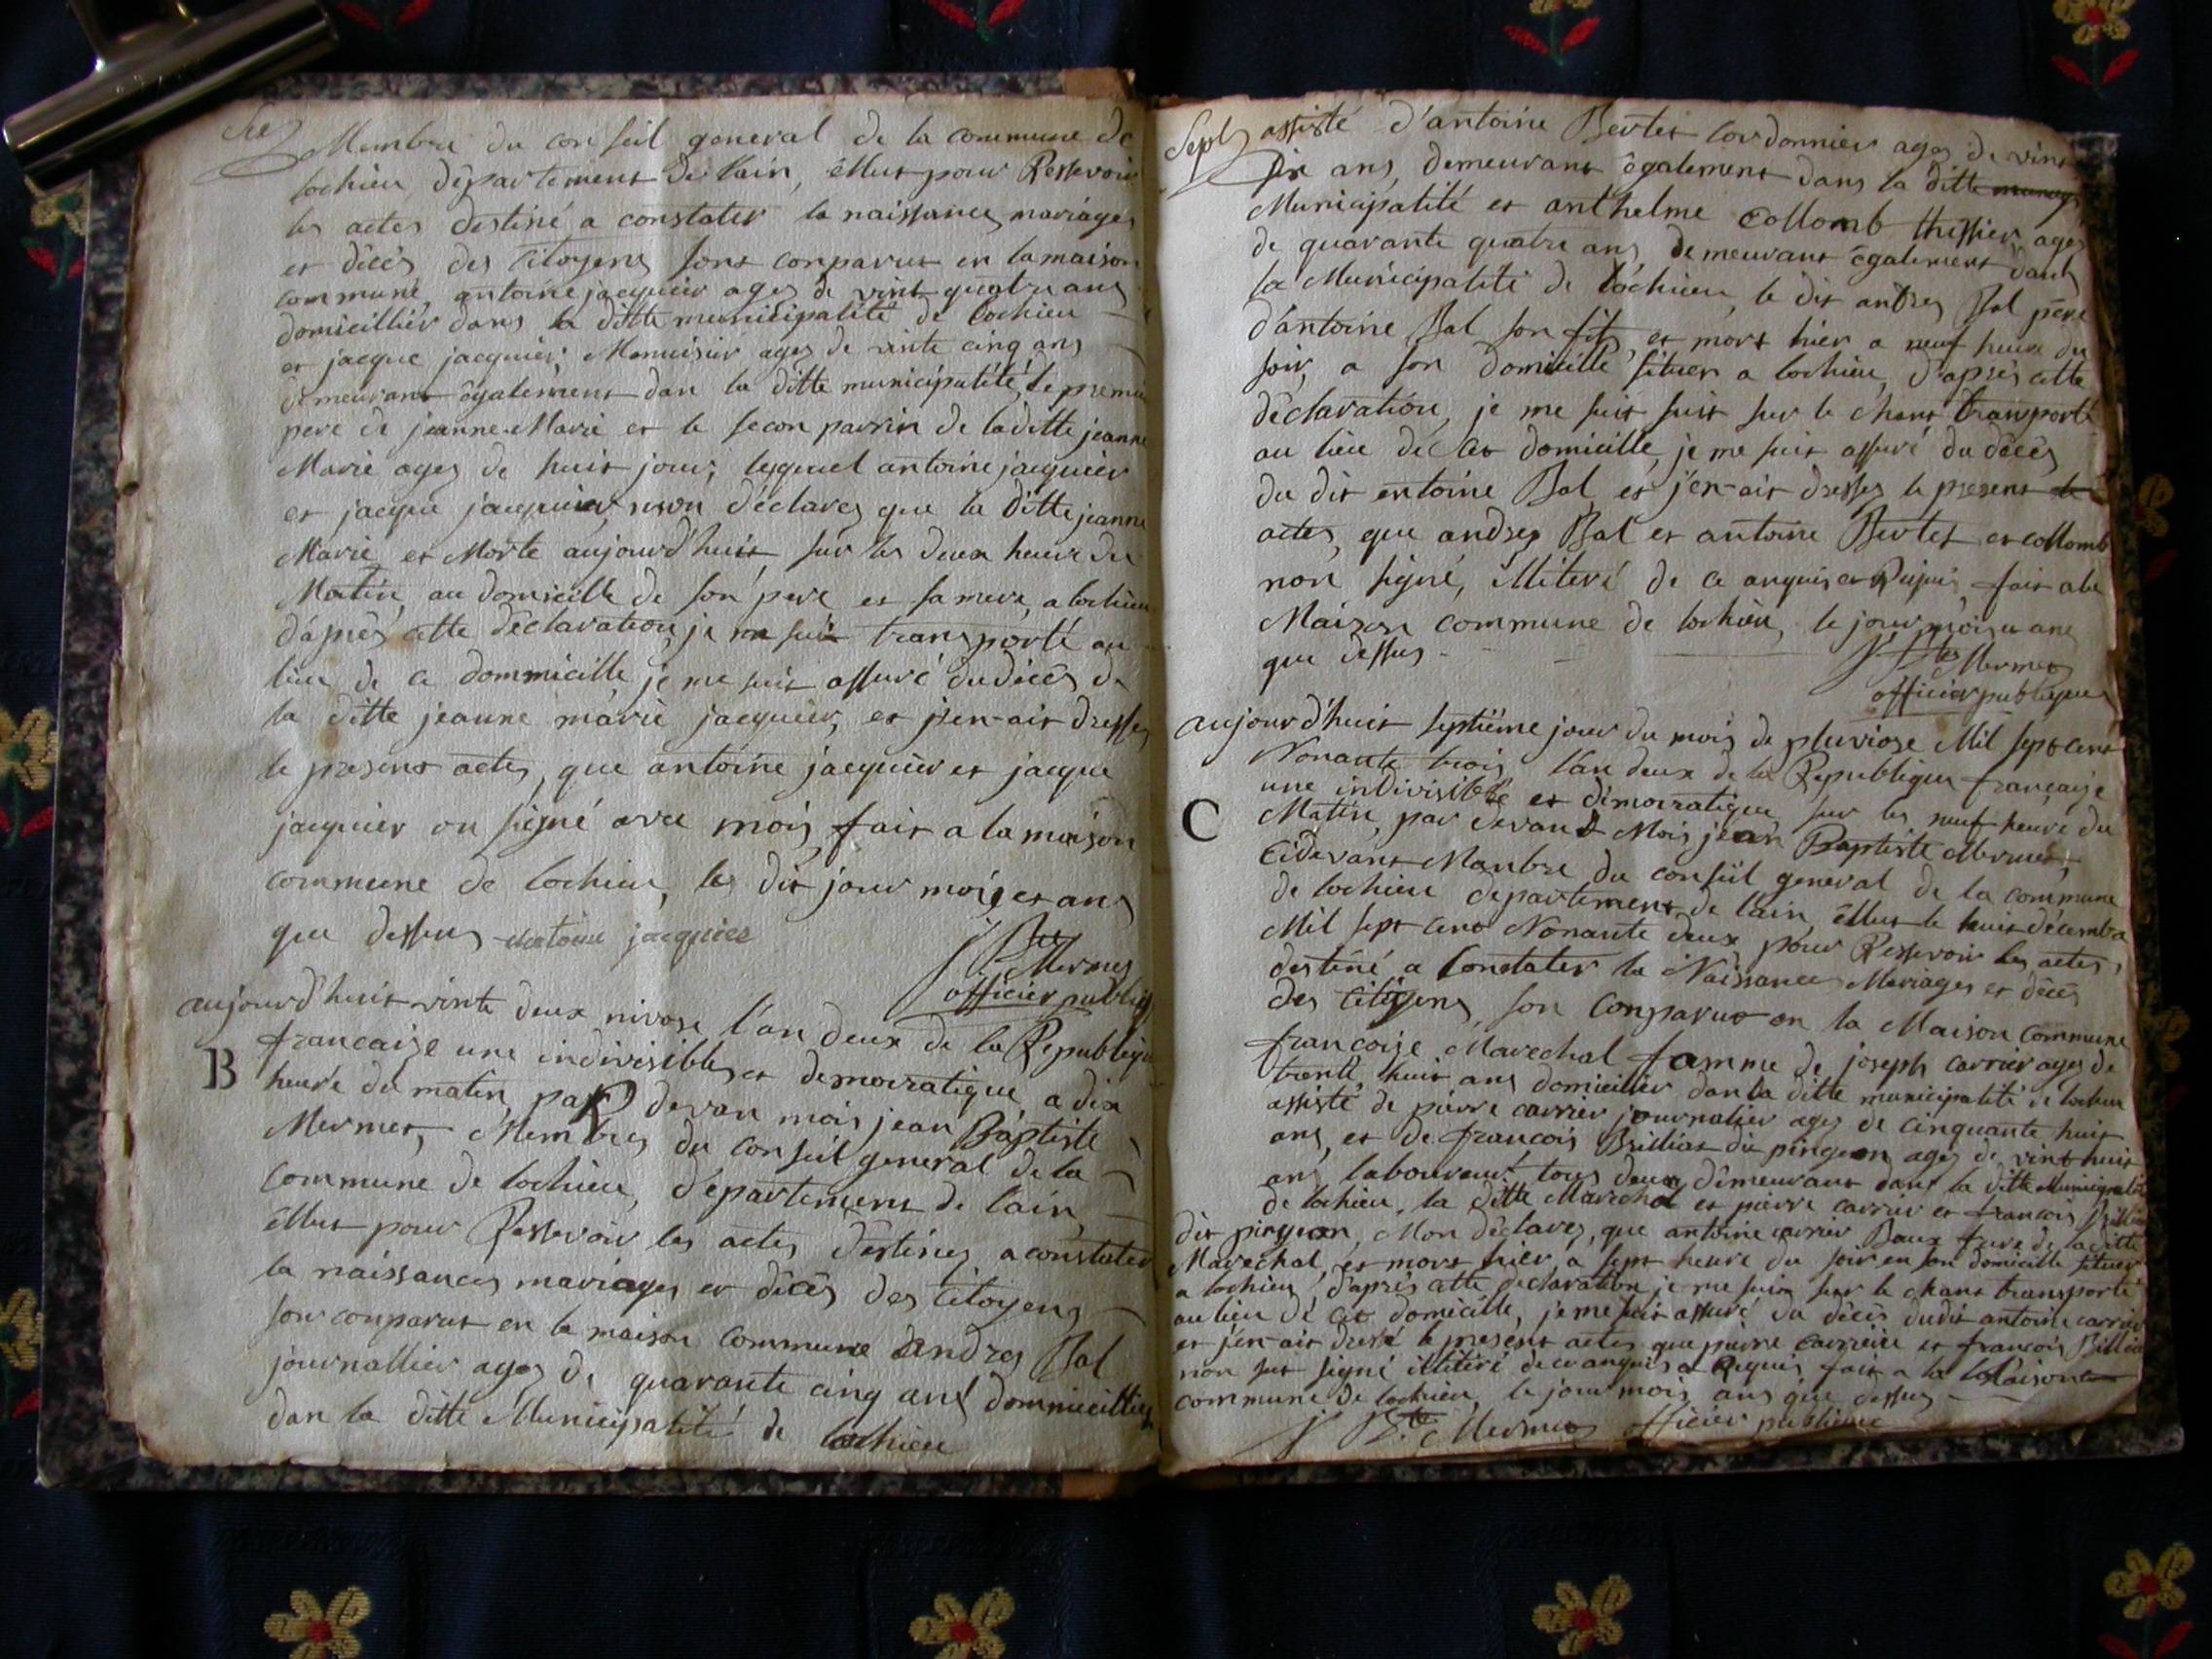 Membre du conseil general de la commune de
lochieu, département de l'ain, éllut pour Resservoir
les actes destiné a constater la naissances mariages
et décès des Citoyens sont conparut en la maison
commune, antoine jacquier ages de vint quatre ans
domicillier dans la ditte municipalité de lochieu
et jacque jacquier, Menuisier ages de vinte cinq ans
demeurant également dan la ditte municipalité, le premier
pere de jeanne Marie et le secon parrin de la ditte jeanne
Marie ages de huit jour; lesquel antoine jacquier
et jacque jacquier mon déclarez que la ditte jeanne
Marie et Morte aujourd'huit sur les deux heure du
Matin, au domicille de son pere et sa mere, a lochieu
d'après cette déclaration je me suit transporté au
lieu de ce dommicille, je me suit assuré du décès de
la ditte jeanne marie jacquier, et j'en-ait dressez
le present actes, que antoine jacquier et jacque
jacquier on signé avec mois, fait a la maison
commune de lochieu, les dit jour mois et ans
que dessus antoine jacquier
J Bte Mermet
officier public
aujourd'huit vinte deux nivose l'an deux de la Republique
B
francaise une indivisibles et démocratique a dix
heure du matin, par devan mois jean Baptiste
Mermet, Membres du conseil general de la
commune de lochieu, département de l'ain,
éllut pour Resservoir les actes destinez a constater
la naissances mariages et décès des Citoyens
son conparut en la maison commune andrez Bal
journallier ages de quarante cinq ans dommicillier
dan la ditte Municipalité de lochieu
Sept
assisté d'antoine Bertet cordonnier ages de vint
six ans, demeurant également dans la ditte
Municipalité et anthelme Collomb thissier ages
de quarante quatre ans, demeurant également dant
la Municipalité de lochieu, le dit andrez Bal père
d'antoine Bal son fils, et mort hier a neuf heure du
soir, a son domicille situer a lochieu, d'après cette
déclaration, je me suit suit sur le chant transporté
au lieu de cet domicille, je me suit assuré du décès
du dit antoine Bal et j'en-ait dressez le present
actes, que andrez Bal et antoine Bertet et collomb
non signé, illiteré de ce anquis et Requis, fait a la
Maison commune de lochieu, le jour mois et ans
que dessus
J Bte Mermet
officier publique
aujourd'huit septième jour du mois de pluviose Mil sept cent
Nonante trois l'an deux de la Republique française
une indivisible et démocratique sur les neuf heure du
C
Matin, par devant Mois jean Baptiste Mermet,
Cidevant Manbre du conseil general de la commune
de lochieu departement de l'ain, éllut le huit décembre
Mil sept cent Nonante deux pour Resservoir les actes,
destiné a constater la Naissances Mariages et décès
des Citoyens, son conparut en la Maison commune
francoise Marechal famme de joseph carrier ages de
trente huit ans domicillier dan la ditte municipalité de lochieu
assisté de pierre carrier journalier ages de cinquante huit
ans, et de francois Brillat dit pingeon ages de vint huit
ans laboureur tous deux demeurant dant la ditte Municipalité
de lochieu, la ditte Marechal et pierre carrier et francois
dit pingeon, Mon déclarez, que antoine carrier Baux frere de la ditte
Marechal, et mort hier a sept heure du soir en son domicille situer
a lochieu d'après cette declaration je me suit sur le chant transporté
au lieu de cet domicille, je me suit assuré du décès dudit antoine carrier
et j'en-ait dressé le present actes que pierre carrier et francois Billiat
non sut signé illitéré de ce anquis et Requis fait a la Maison
commune de lochieu, le jour mois ans que dessus
J Bte Mermet officier publique